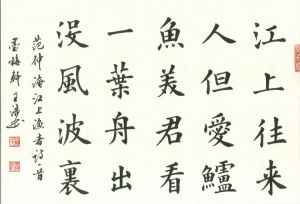 江上往來
人但愛鱸
魚美君看
一葉舟出
沒風波裏
范仲淹江上漁者詩一首